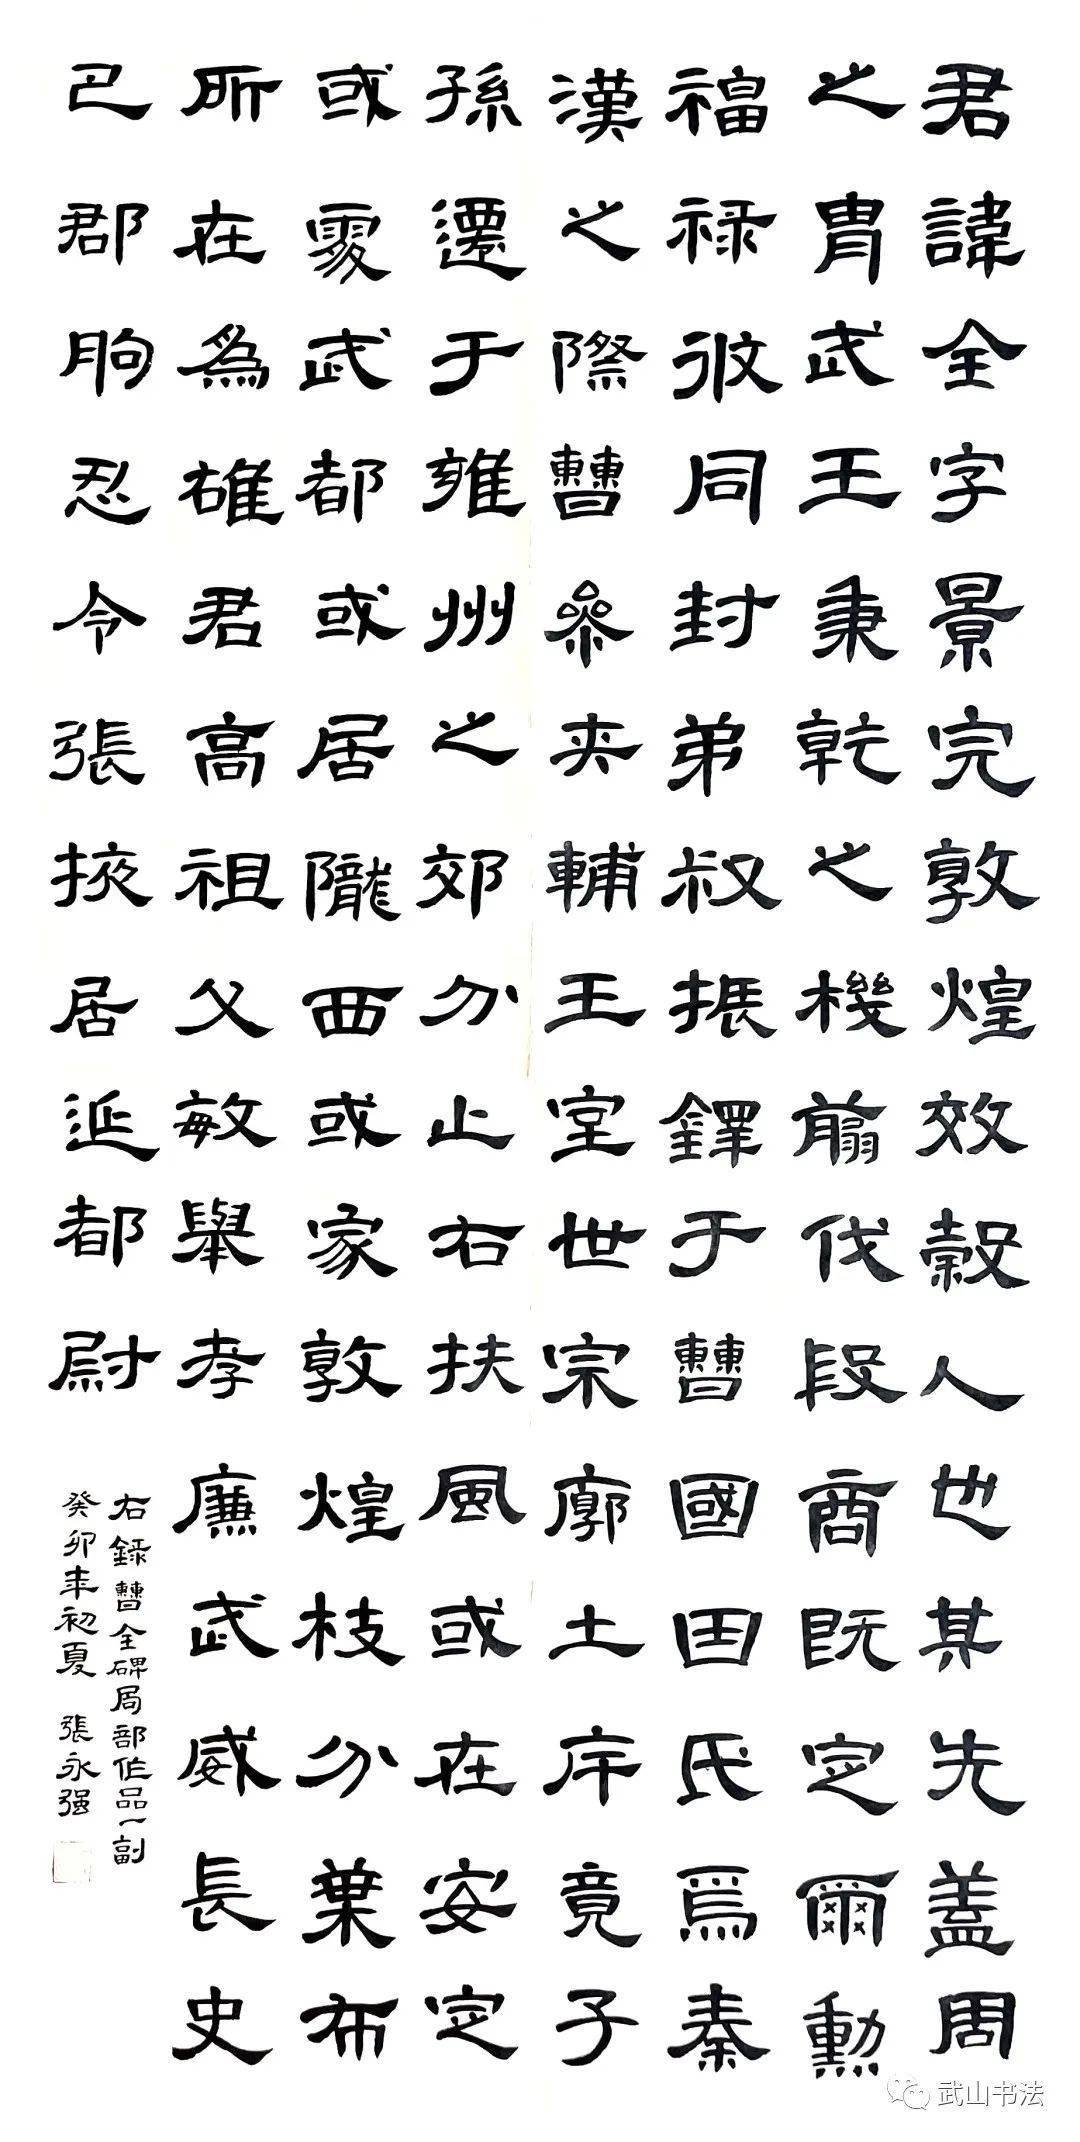 君諱全字景完敦煌效穀人也其先蓋周
之胄武王秉乾之機翦伐殷商既定爾勳
福祿攸同封弟叔振鐸于曹國因氏焉秦
漢之際曹參夾輔王室世宗廓土斥竟子
孫遷于雍州之郊分止右扶風或在安定
或處武都或居隴西或家敦煌枝分葉布
所在為雄君高祖父敏舉孝廉武威長史
巴郡朐忍令張掖居延都尉
右錄曹全碑局部作品一副
癸卯年初夏 張永强
武山书法